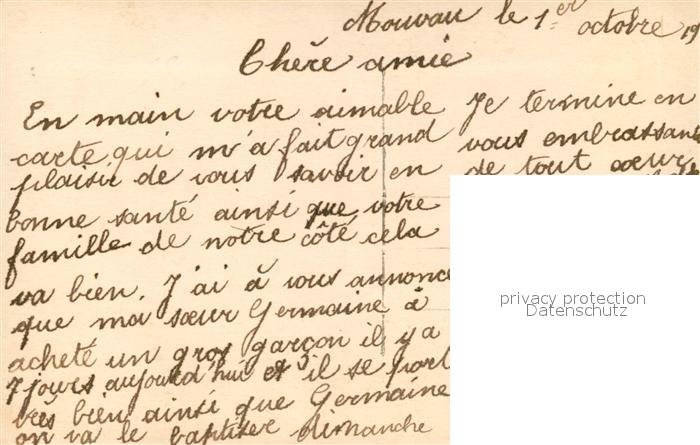 Mouvau le 1er octobre 19
Chère amie
En main votre aimable
carte, qui m'a fait grand
plaisir de vous savoir en
bonne santé ainsi que votre
famille de notre côté cela
va bien. J'ai à vous annonce
que ma sœur Germaine à
acheté un gros garçon il y a
7 jours aujourd'hui et il se port
très bien ainsi que Germaine
on va le baptiser dimanche
Je termine en
vous embrassant
de tout cœur
privacy protection
Datenschutz